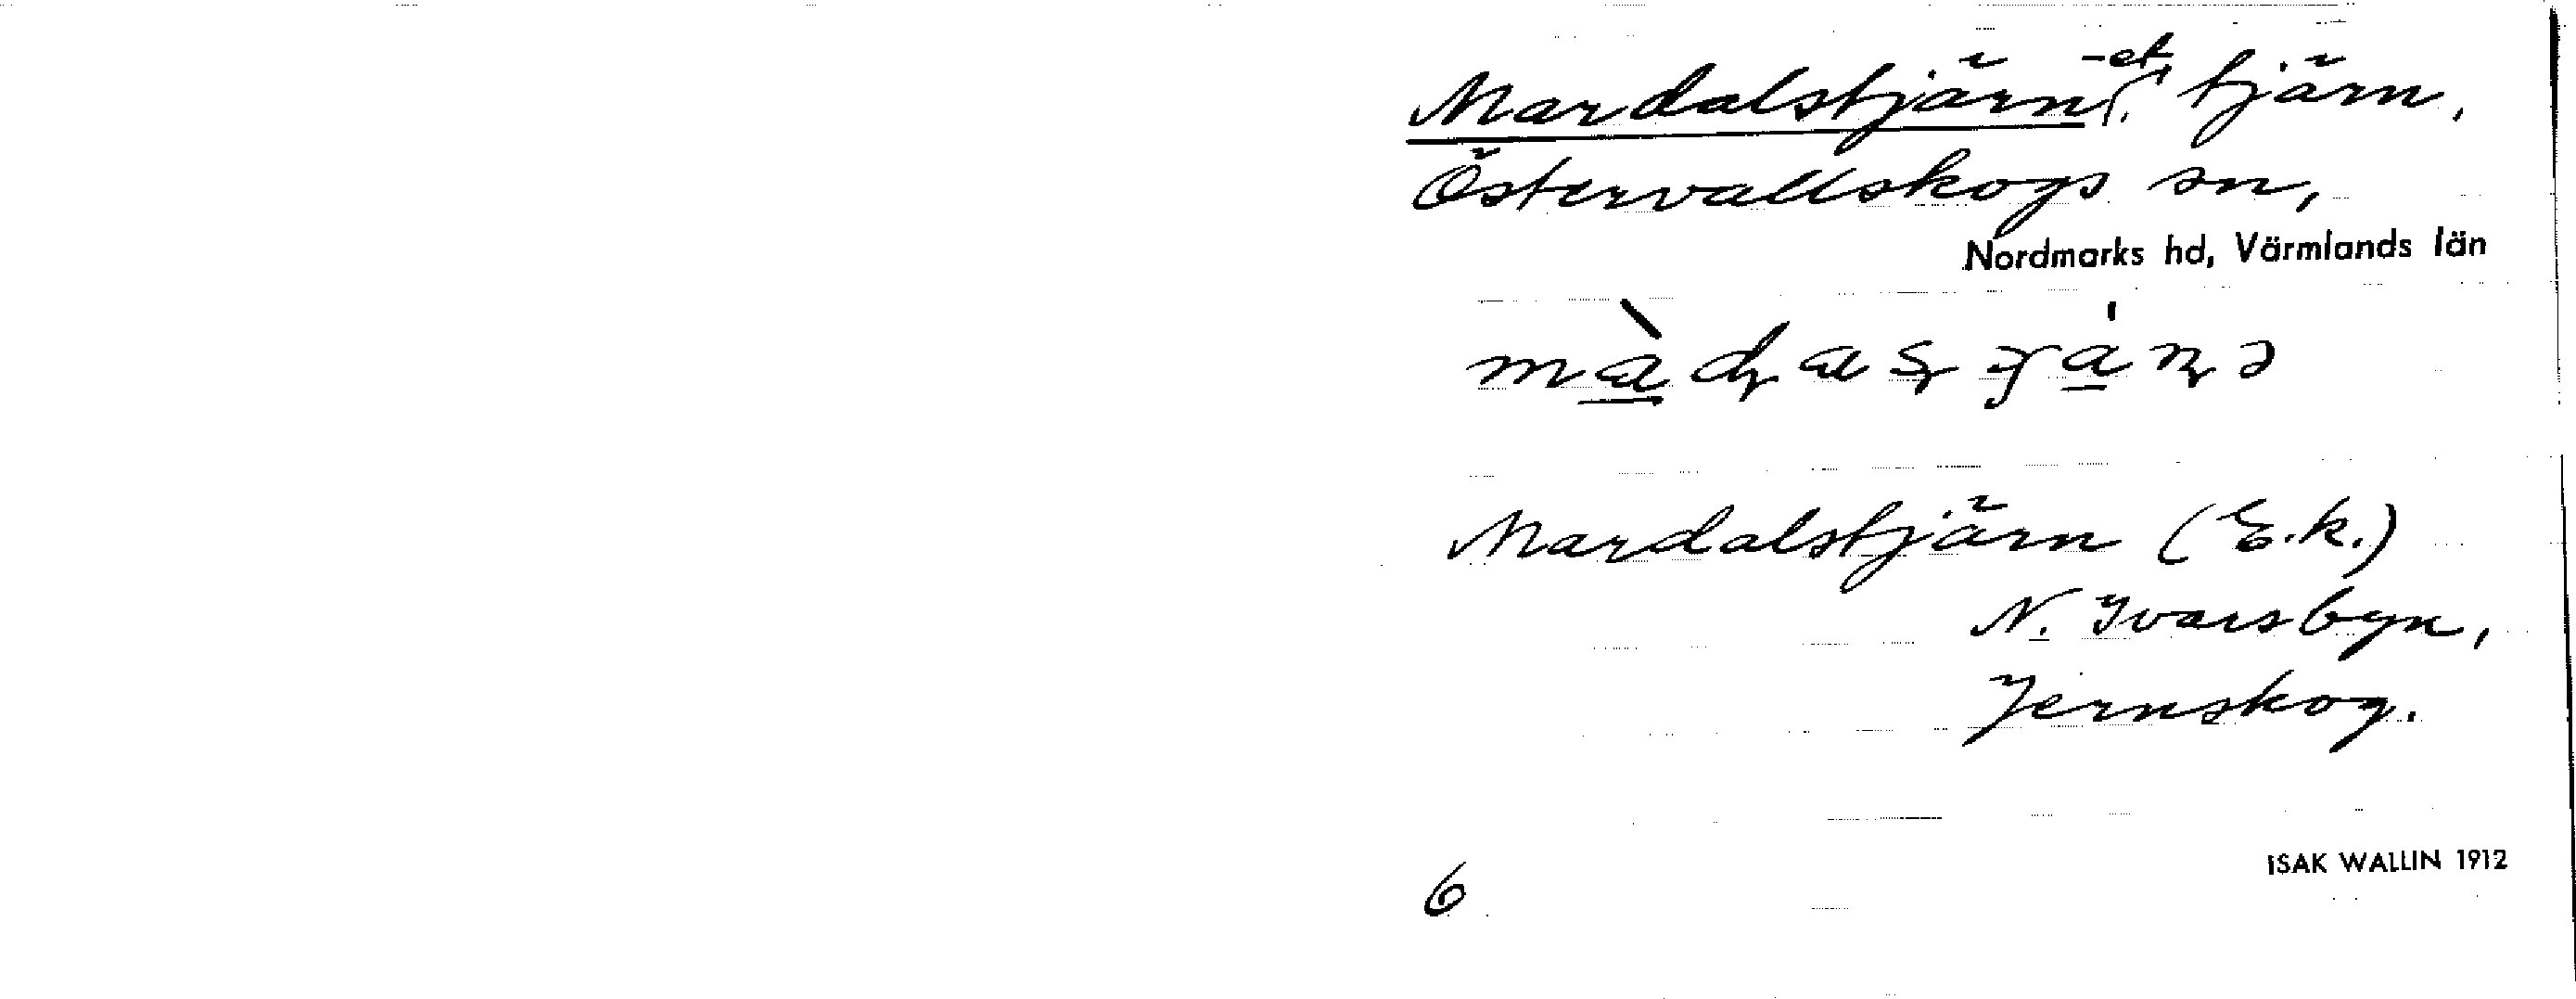 Mardalstjärn, -et, tjärn,
Östervallskogs sn,
Nordmarks hd, Värmlands län
Mardalstjärn (E.k.)
N. Ivarsbyn,
Jernskog.
6
ISAK WALLIN 1912